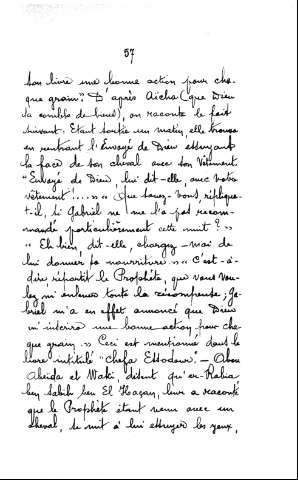 57
son livre une bonne action pour cha-
que grain." D'après Aïcha (que Dieu
la comble de biens), on raconte le fait
suivant. Etant sortie un matin, elle trouva
en rentrant l'Envoyé de Dieu essuyant
la face de son cheval avec son vêtement
"Envoyé de Dieu lui dit-elle, avec votre
vêtement !...." "Que savez-vous, réplique-
t-il, si Gabriel ne me l'a pas recom-
mandé particulièrement cette nuit ?"
" Eh bien, dit-elle, chargez-moi de
lui donner sa nourriture." " C'est-à-
dire répartit le Prophète, que vous vou-
lez m'enlever toute la récompense; Ga-
briel m'a en effet annoncé que Dieu
m'inscrira une bonne action pour cha-
que grain." Ceci est mentionné dans le
livre intitulé "Chefa Essodour". — Abou
Abeida et Waki, disent qu'er-Rabia
ben Sabih ben El Hassan, leur a raconté
que le Prophète étant venu avec un
cheval, se mit à lui essuyer les yeux,